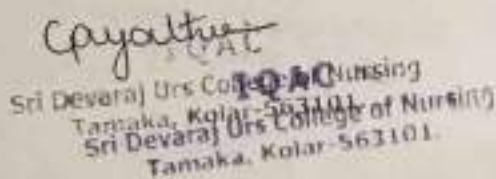 IQAC
IQAC
Sri Devaraj Urs College of Nursing
Tamaka, Kolar-563101.
Sri Devaraj Urs College of Nursing
Tamaka, Kolar-563101.